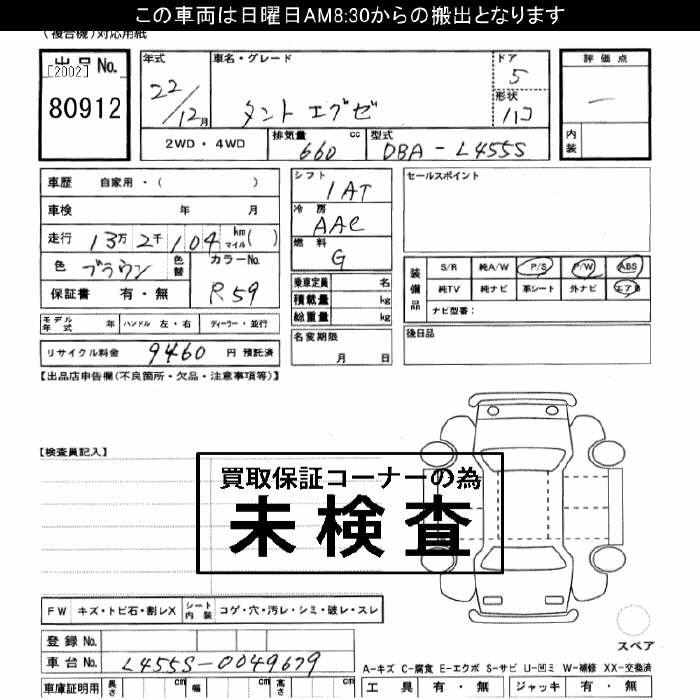 この車両は日曜日AM8:30からの搬出となります
(複合機)対応用紙
出品No. [2002] 80912
年式 22/12月
車名・グレード タントエグゼ
ドア 5
形状 ハコ
評価点 —
内装
2WD・4WD
排気量 660 cc
型式 DBA-L455S
車歴 自家用・( )
車検 年 月
走行 13万2千104 km マイル( )
色 ブラウン 色替
カラーNo. R59
保証書 有・無
シフト IAT
冷房 AAC
燃料 G
乗車定員 名
積載量 kg
総重量 kg
セールスポイント
装備品
S/R 純A/W P/S P/W ABS
純TV 純ナビ 革シート 外ナビ エアB
ナビ型番:
モデル年式 年 ハンドル 左・右 ディーラー・並行
名変期限 月 日
後日品
リサイクル料金 9460 円 預託済
【出品店申告欄(不良箇所・欠品・注意事項等)】
【検査員記入】
買取保証コーナーの為
未検査
FW キズ・トビ石・割レX シート内装 コゲ・穴・汚レ・シミ・破レ・スレ
登録No.
車台No. L455S-0049679
スペア
A-キズ C-腐食 E-エクボ S-サビ U-凹ミ W-補修 XX-交換済
車庫証明用 長さ cm 幅 cm 高さ cm
工具 有・無 ジャッキ 有・無